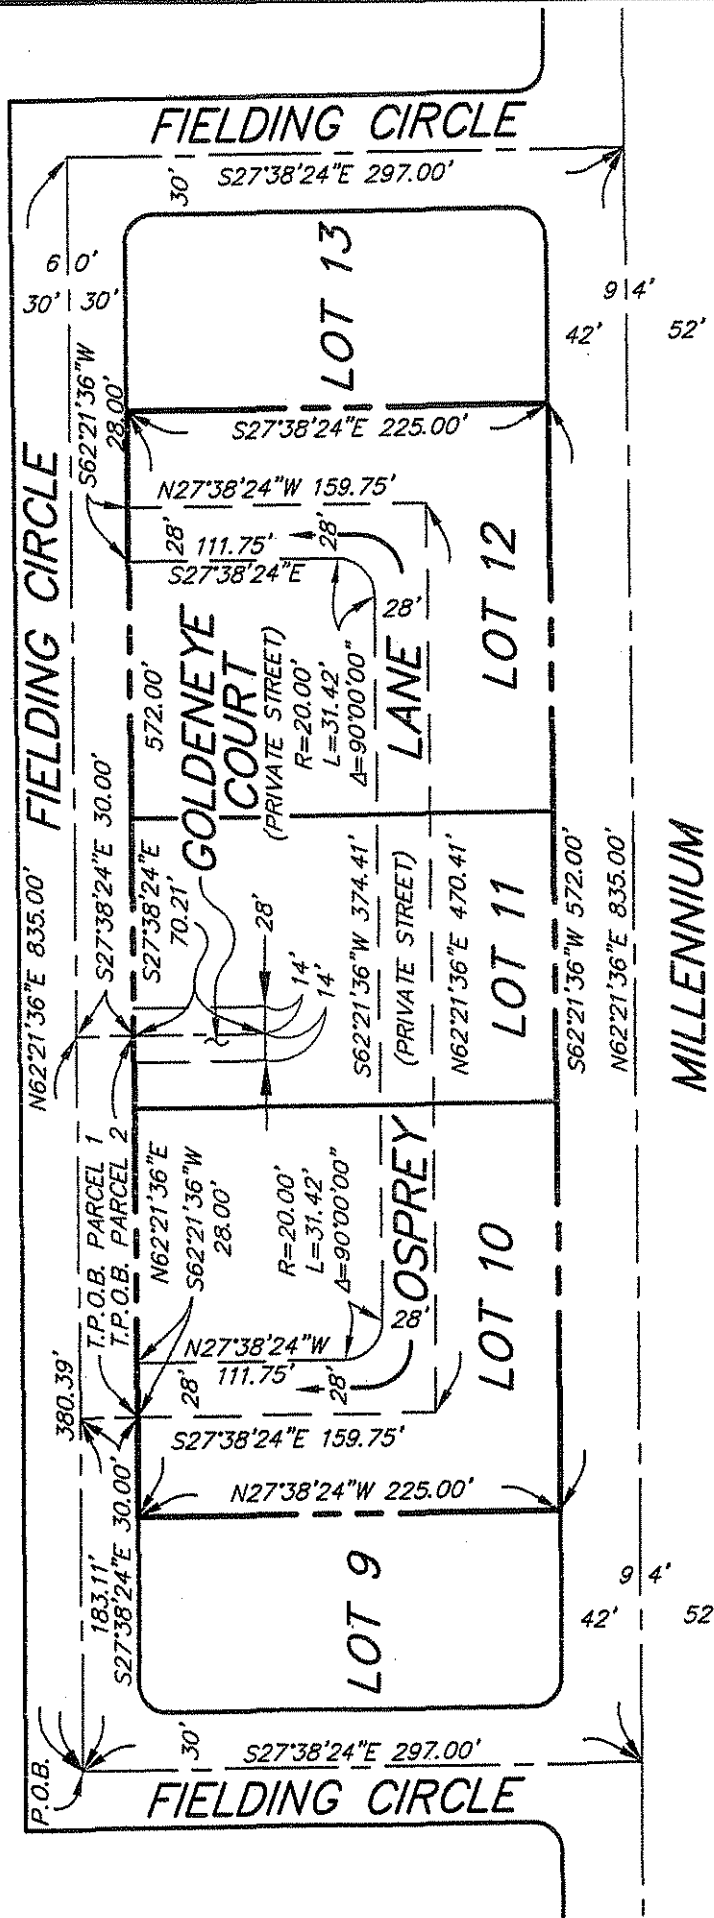 FIELDING CIRCLE
S27°38'24"E 297.00'
30'
60'
30' 30'
94'
42' 52'
LOT 13
S62°21'36"W
28.00'
S27°38'24"E 225.00'
N27°38'24"W 159.75'
28'
111.75'
28'
S27°38'24"E
28'
FIELDING CIRCLE
N62°21'36"E 835.00'
572.00'
GOLDENEYE
COURT
(PRIVATE STREET)
R=20.00'
L=31.42'
Δ=90°00'00"
LANE
LOT 12
S27°38'24"E 30.00'
S27°38'24"E
70.21'
28'
14'
14'
S62°21'36"W 374.41'
(PRIVATE STREET)
N62°21'36"E 470.41'
LOT 11
S62°21'36"W 572.00'
N62°21'36"E 835.00'
MILLENNIUM
380.39'
T.P.O.B. PARCEL 1
T.P.O.B. PARCEL 2
N62°21'36"E
S62°21'36"W
28.00'
R=20.00'
L=31.42'
Δ=90°00'00"
OSPREY
LOT 10
28'
N27°38'24"W
111.75'
28'
28'
S27°38'24"E 159.75'
N27°38'24"W 225.00'
183.11'
S27°38'24"E 30.00'
LOT 9
94'
42' 52
P.O.B.
30'
S27°38'24"E 297.00'
FIELDING CIRCLE